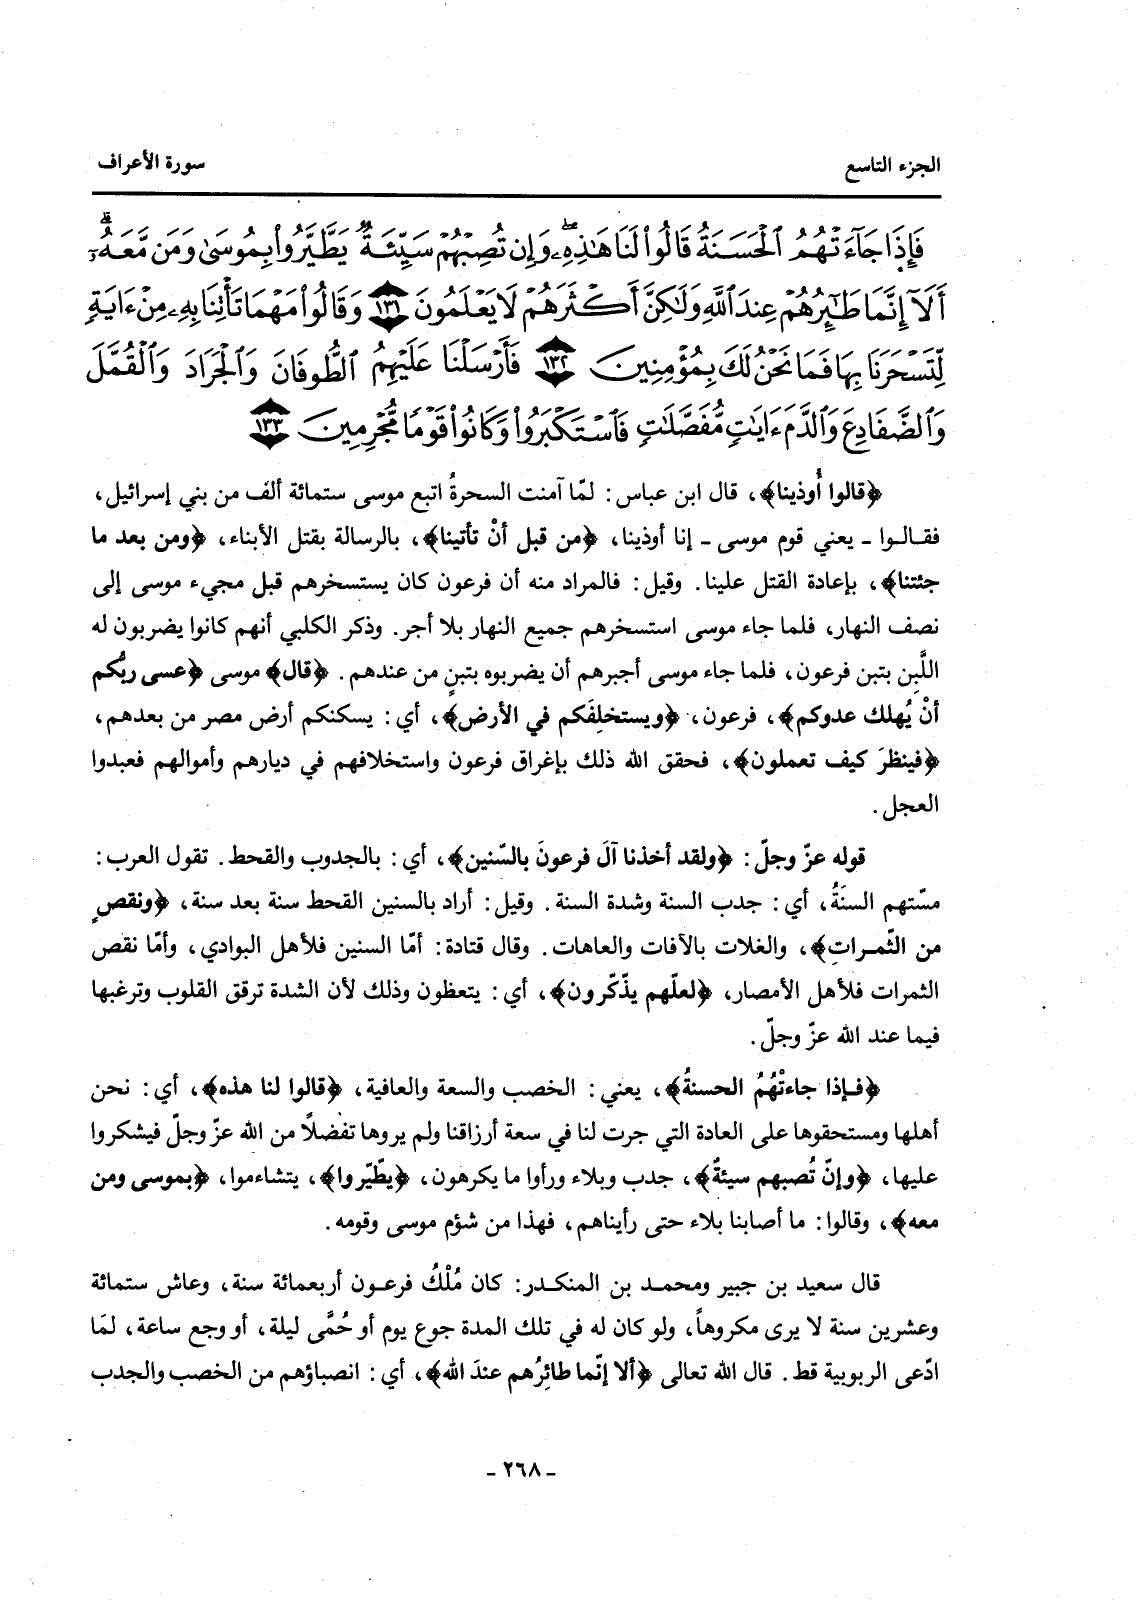 الجزء التاسع سورة الأعراف
فَإِذَا جَآءَتْهُمُ ٱلْحَسَنَةُ قَالُوا۟ لَنَا هَٰذِهِۦ ۖ وَإِن تُصِبْهُمْ سَيِّئَةٌ يَطَّيَّرُوا۟ بِمُوسَىٰ وَمَن مَّعَهُۥٓ ۗ
أَلَآ إِنَّمَا طَٰٓئِرُهُمْ عِندَ ٱللَّهِ وَلَٰكِنَّ أَكْثَرَهُمْ لَا يَعْلَمُونَ ١٣١ وَقَالُوا۟ مَهْمَا تَأْتِنَا بِهِۦ مِنْ ءَايَةٍ
لِّتَسْحَرَنَا بِهَا فَمَا نَحْنُ لَكَ بِمُؤْمِنِينَ ١٣٢ فَأَرْسَلْنَا عَلَيْهِمُ ٱلطُّوفَانَ وَٱلْجَرَادَ وَٱلْقُمَّلَ
وَٱلضَّفَادِعَ وَٱلدَّمَ ءَايَٰتٍ مُّفَصَّلَٰتٍ فَٱسْتَكْبَرُوا۟ وَكَانُوا۟ قَوْمًا مُّجْرِمِينَ ١٣٣
﴿قالوا أُوذينا﴾، قال ابن عباس: لمّا آمنت السحرةُ اتبع موسى ستمائة ألف من بني إسرائيل،
فقالوا ـ يعني قوم موسى ـ إنا أوذينا، ﴿من قبل أنْ تأتينا﴾، بالرسالة بقتل الأبناء، ﴿ومن بعد ما
جئتنا﴾، بإعادة القتل علينا. وقيل: فالمراد منه أن فرعون كان يستسخرهم قبل مجيء موسى إلى
نصف النهار، فلما جاء موسى استسخرهم جميع النهار بلا أجر. وذكر الكلبي أنهم كانوا يضربون له
اللَّبِن بتبن فرعون، فلما جاء موسى أجبرهم أن يضربوه بتبنٍ من عندهم. ﴿قال﴾ موسى ﴿عسى ربُّكم
أنْ يُهلك عدوكم﴾، فرعون، ﴿ويستخلِفَكم في الأرض﴾، أي: يسكنكم أرض مصر من بعدهم،
﴿فينظرَ كيف تعملون﴾، فحقق الله ذلك بإغراق فرعون واستخلافهم في ديارهم وأموالهم فعبدوا
العجل.
قوله عزّ وجلّ: ﴿ولقد أخذنا آلَ فرعونَ بالسّنين﴾، أي: بالجدوب والقحط. تقول العرب:
مسّتهم السنَةُ، أي: جدب السنة وشدة السنة. وقيل: أراد بالسنين القحط سنة بعد سنة، ﴿ونقصٍ
من الثّمراتِ﴾، والغلات بالآفات والعاهات. وقال قتادة: أمّا السنين فلأهل البوادي، وأمّا نقص
الثمرات فلأهل الأمصار، ﴿لعلّهم يذّكّرون﴾، أي: يتعظون وذلك لأن الشدة ترقق القلوب وترغبها
فيما عند الله عزّ وجلّ.
﴿فإذا جاءتْهُمُ الحسنةُ﴾، يعني: الخصب والسعة والعافية، ﴿قالوا لنا هذه﴾، أي: نحن
أهلها ومستحقوها على العادة التي جرت لنا في سعة أرزاقنا ولم يروها تفضلاً من الله عزّ وجلّ فيشكروا
عليها، ﴿وإنّ تُصبهم سيئةٌ﴾، جدب وبلاء ورأوا ما يكرهون، ﴿يطّيّروا﴾، يتشاءموا، ﴿بموسى ومن
معه﴾، وقالوا: ما أصابنا بلاء حتى رأيناهم، فهذا من شؤم موسى وقومه.
قال سعيد بن جبير ومحمد بن المنكدر: كان مُلْكُ فرعون أربعمائة سنة، وعاش ستمائة
وعشرين سنة لا يرى مكروهاً، ولو كان له في تلك المدة جوع يوم أو حُمَّى ليلة، أو وجع ساعة، لمَا
ادّعى الربوبية قط. قال الله تعالى ﴿ألا إنّما طائِرُهم عندَ الله﴾، أي: انصباؤهم من الخصب والجدب
ـ ٢٦٨ ـ